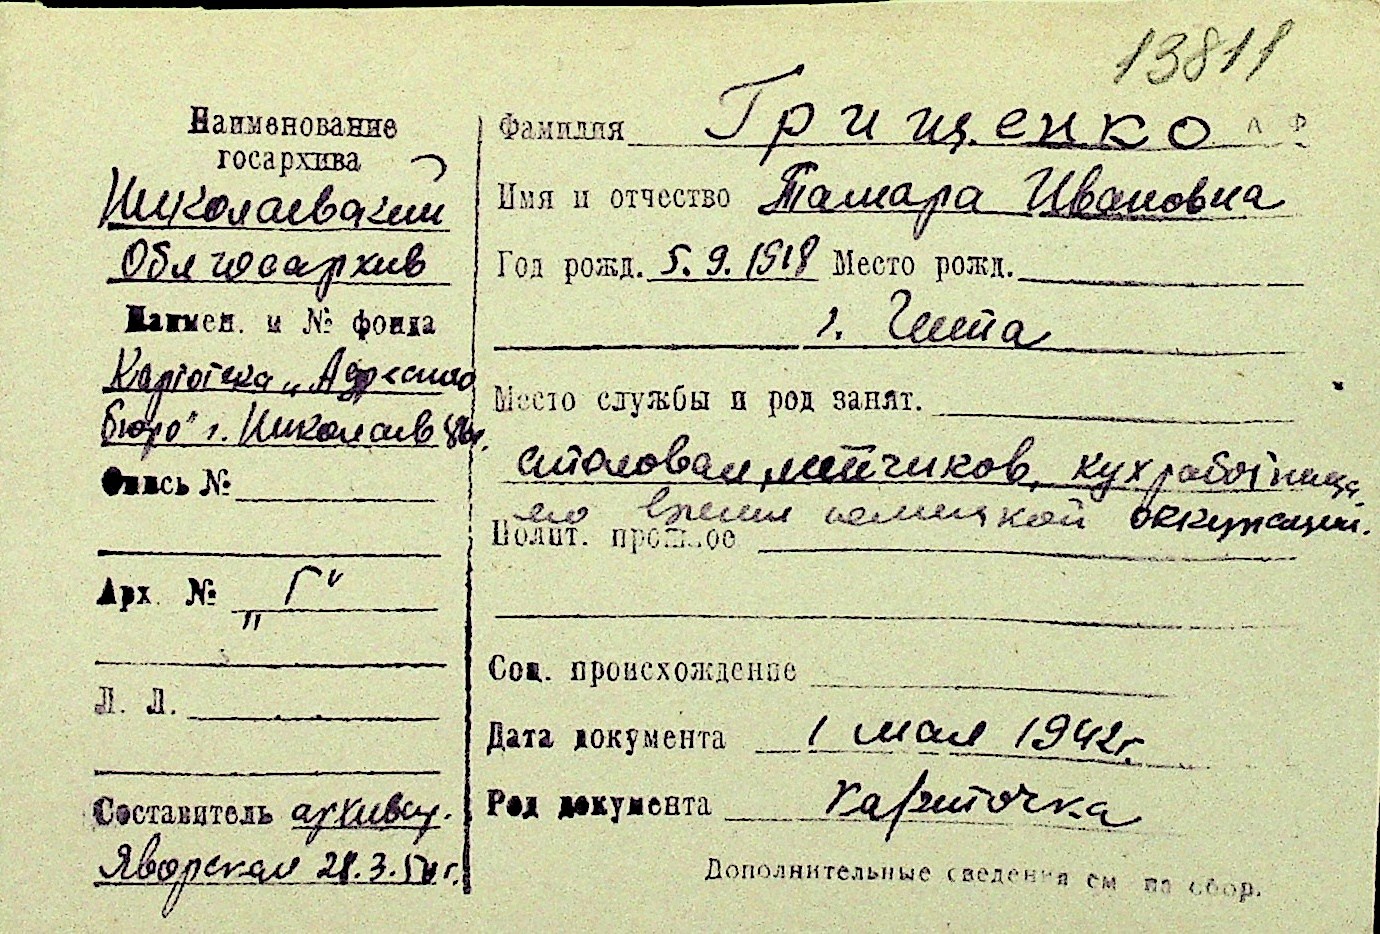 13811
Наименование
госархива
Николаевский
Облгосархив
Наимен. и № фонда
Картотека „Адресного
бюро" г. Николаев
Опись №
Арх. № „Г"
Л. Л.
Составитель архивар.
Яворская 28.3.50 г.
Фамилия Грищенко
Имя и отчество Тамара Ивановна
Год рожд. 5.9.1918 Место рожд.
г. Чита
Место службы и род занят.
столовая летчиков, кухработница
во время немецкой оккупации.
Полит. прошлое
Соц. происхождение
Дата документа 1 мая 1942г.
Род документа карточка
Дополнительные сведения см на обор.